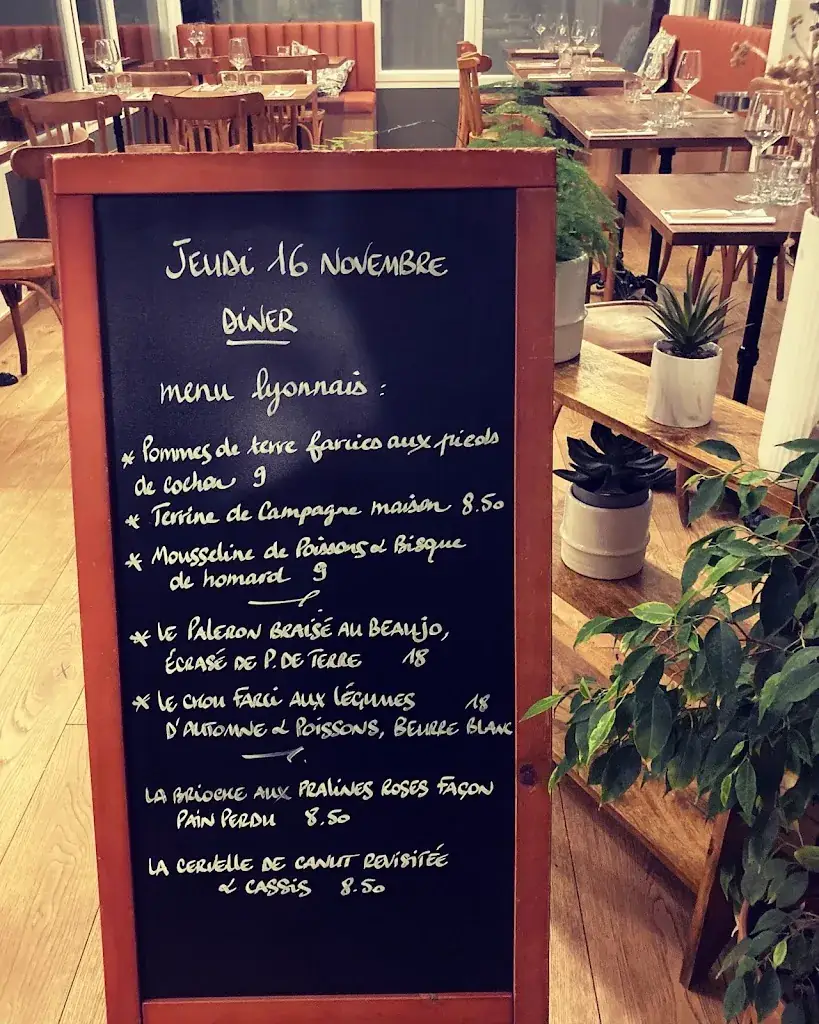 JEUDI 16 NOVEMBRE
DINER
menu lyonnais :
* Pommes de terre farcies aux pieds
de cochon 9
* Terrine de Campagne maison 8.50
* Mousseline de Poissons & Bisque
de homard 9
* LE PALERON BRAISÉ AU BEAUJO,
ÉCRASÉ DE P. DE TERRE 18
* LE CHOU FARCI AUX LÉGUMES 18
D'AUTOMNE & POISSONS, BEURRE BLANC
LA BRIOCHE AUX PRALINES ROSES FAÇON
PAIN PERDU 8.50
LA CERVELLE DE CANUT REVISITÉE
& CASSIS 8.50